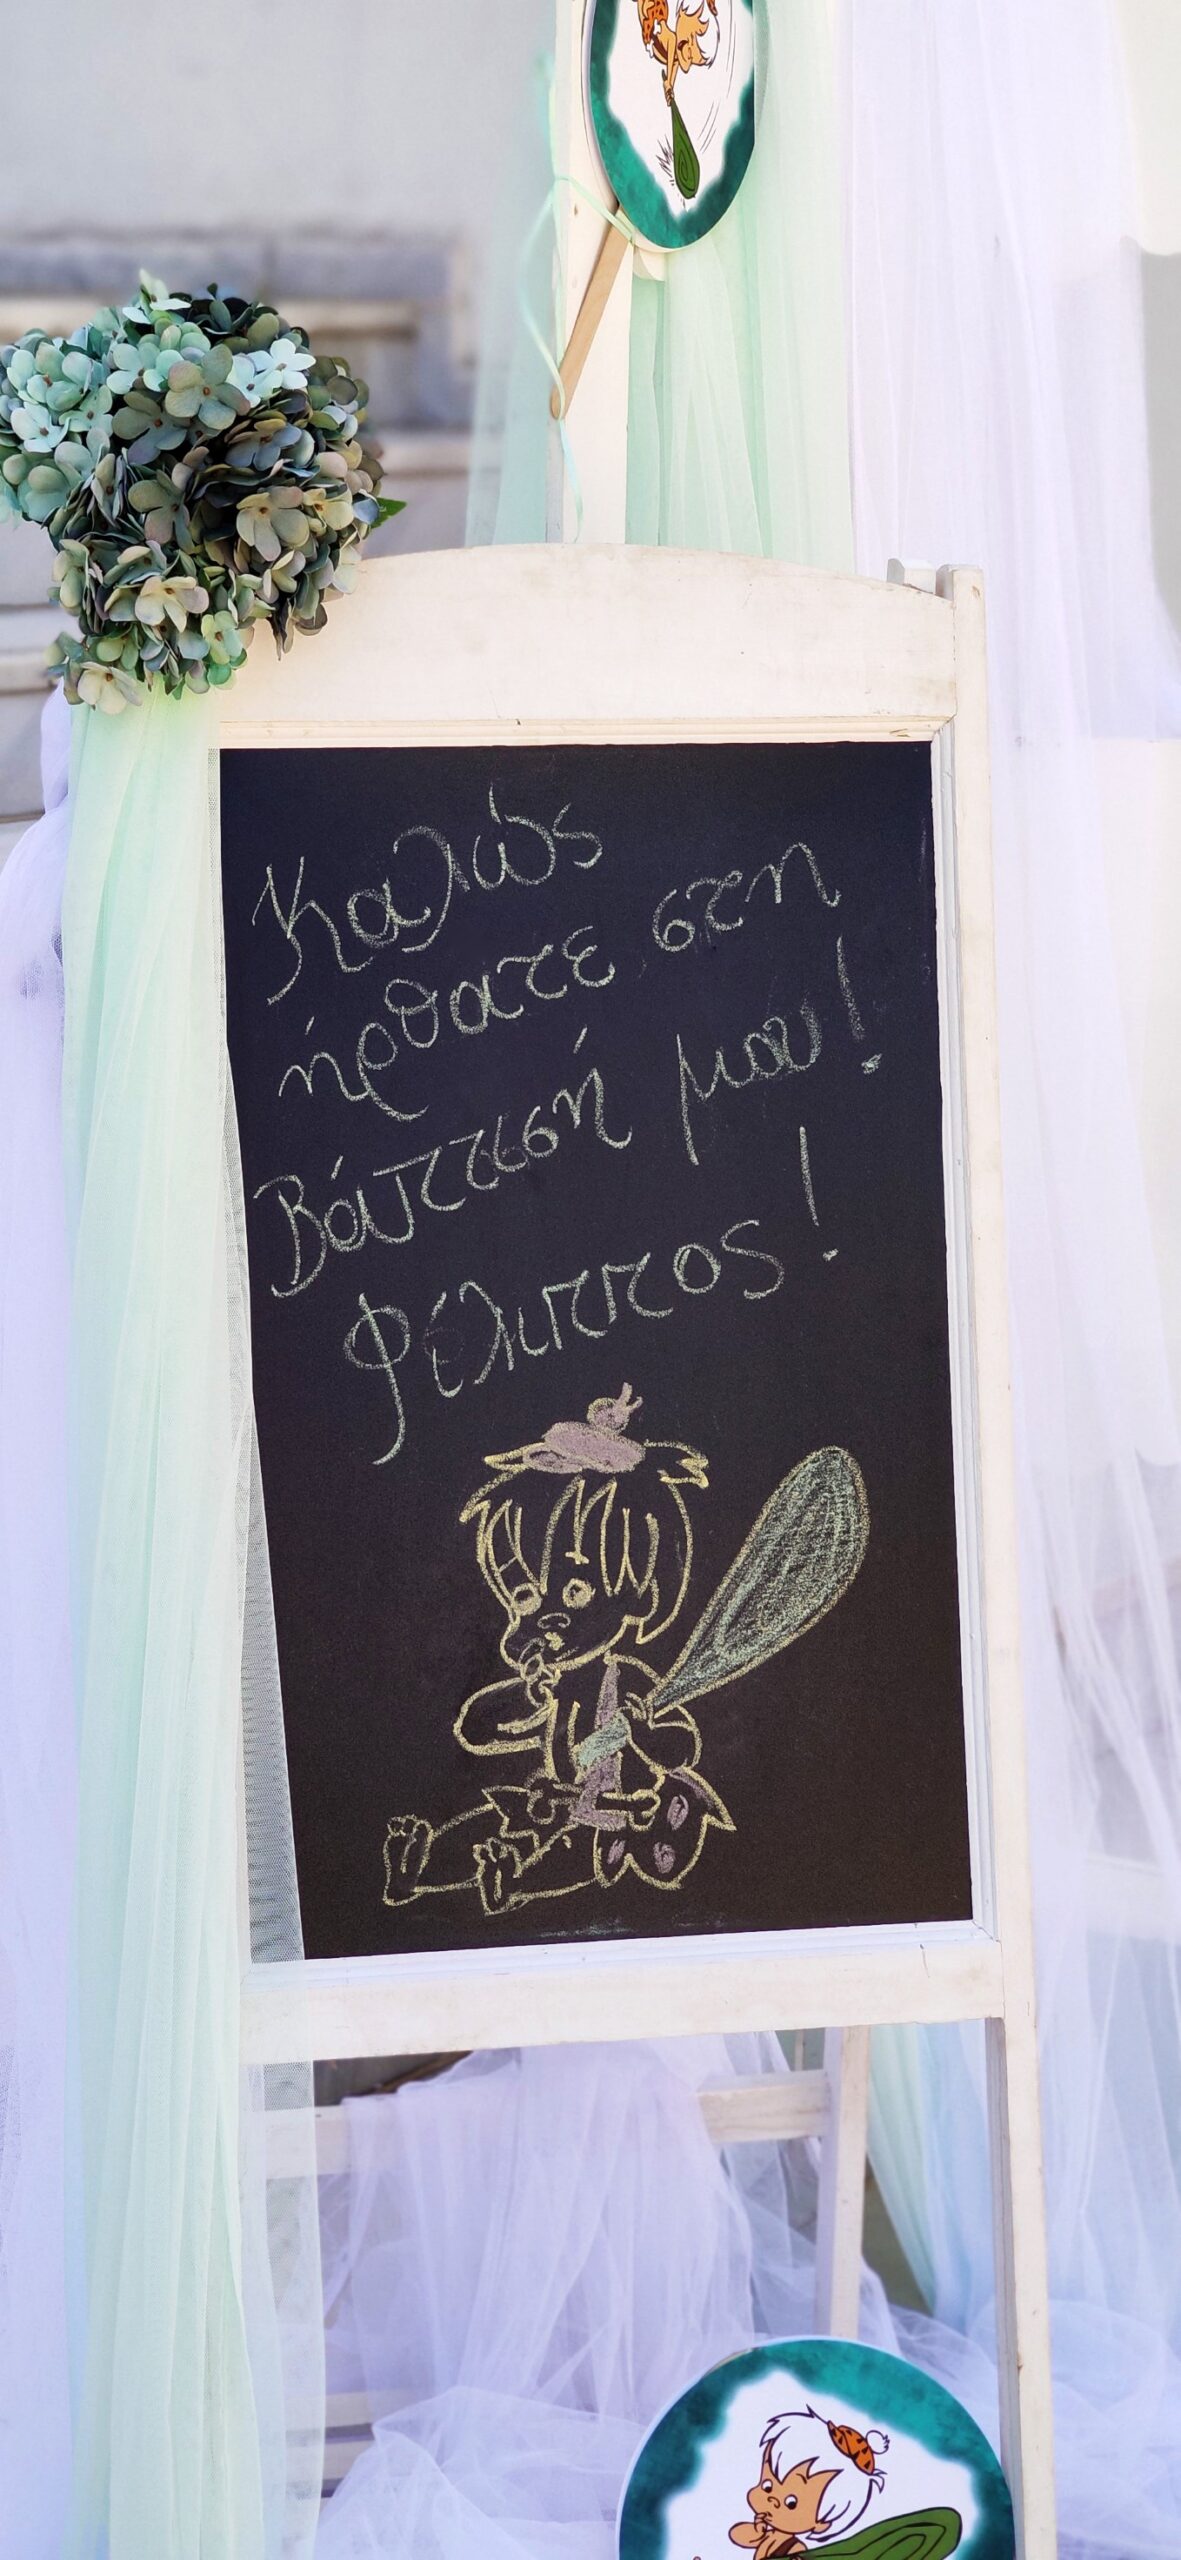 Καλώς
ήρθατε στη
Βάπτισή μου!
Φίλιππος!